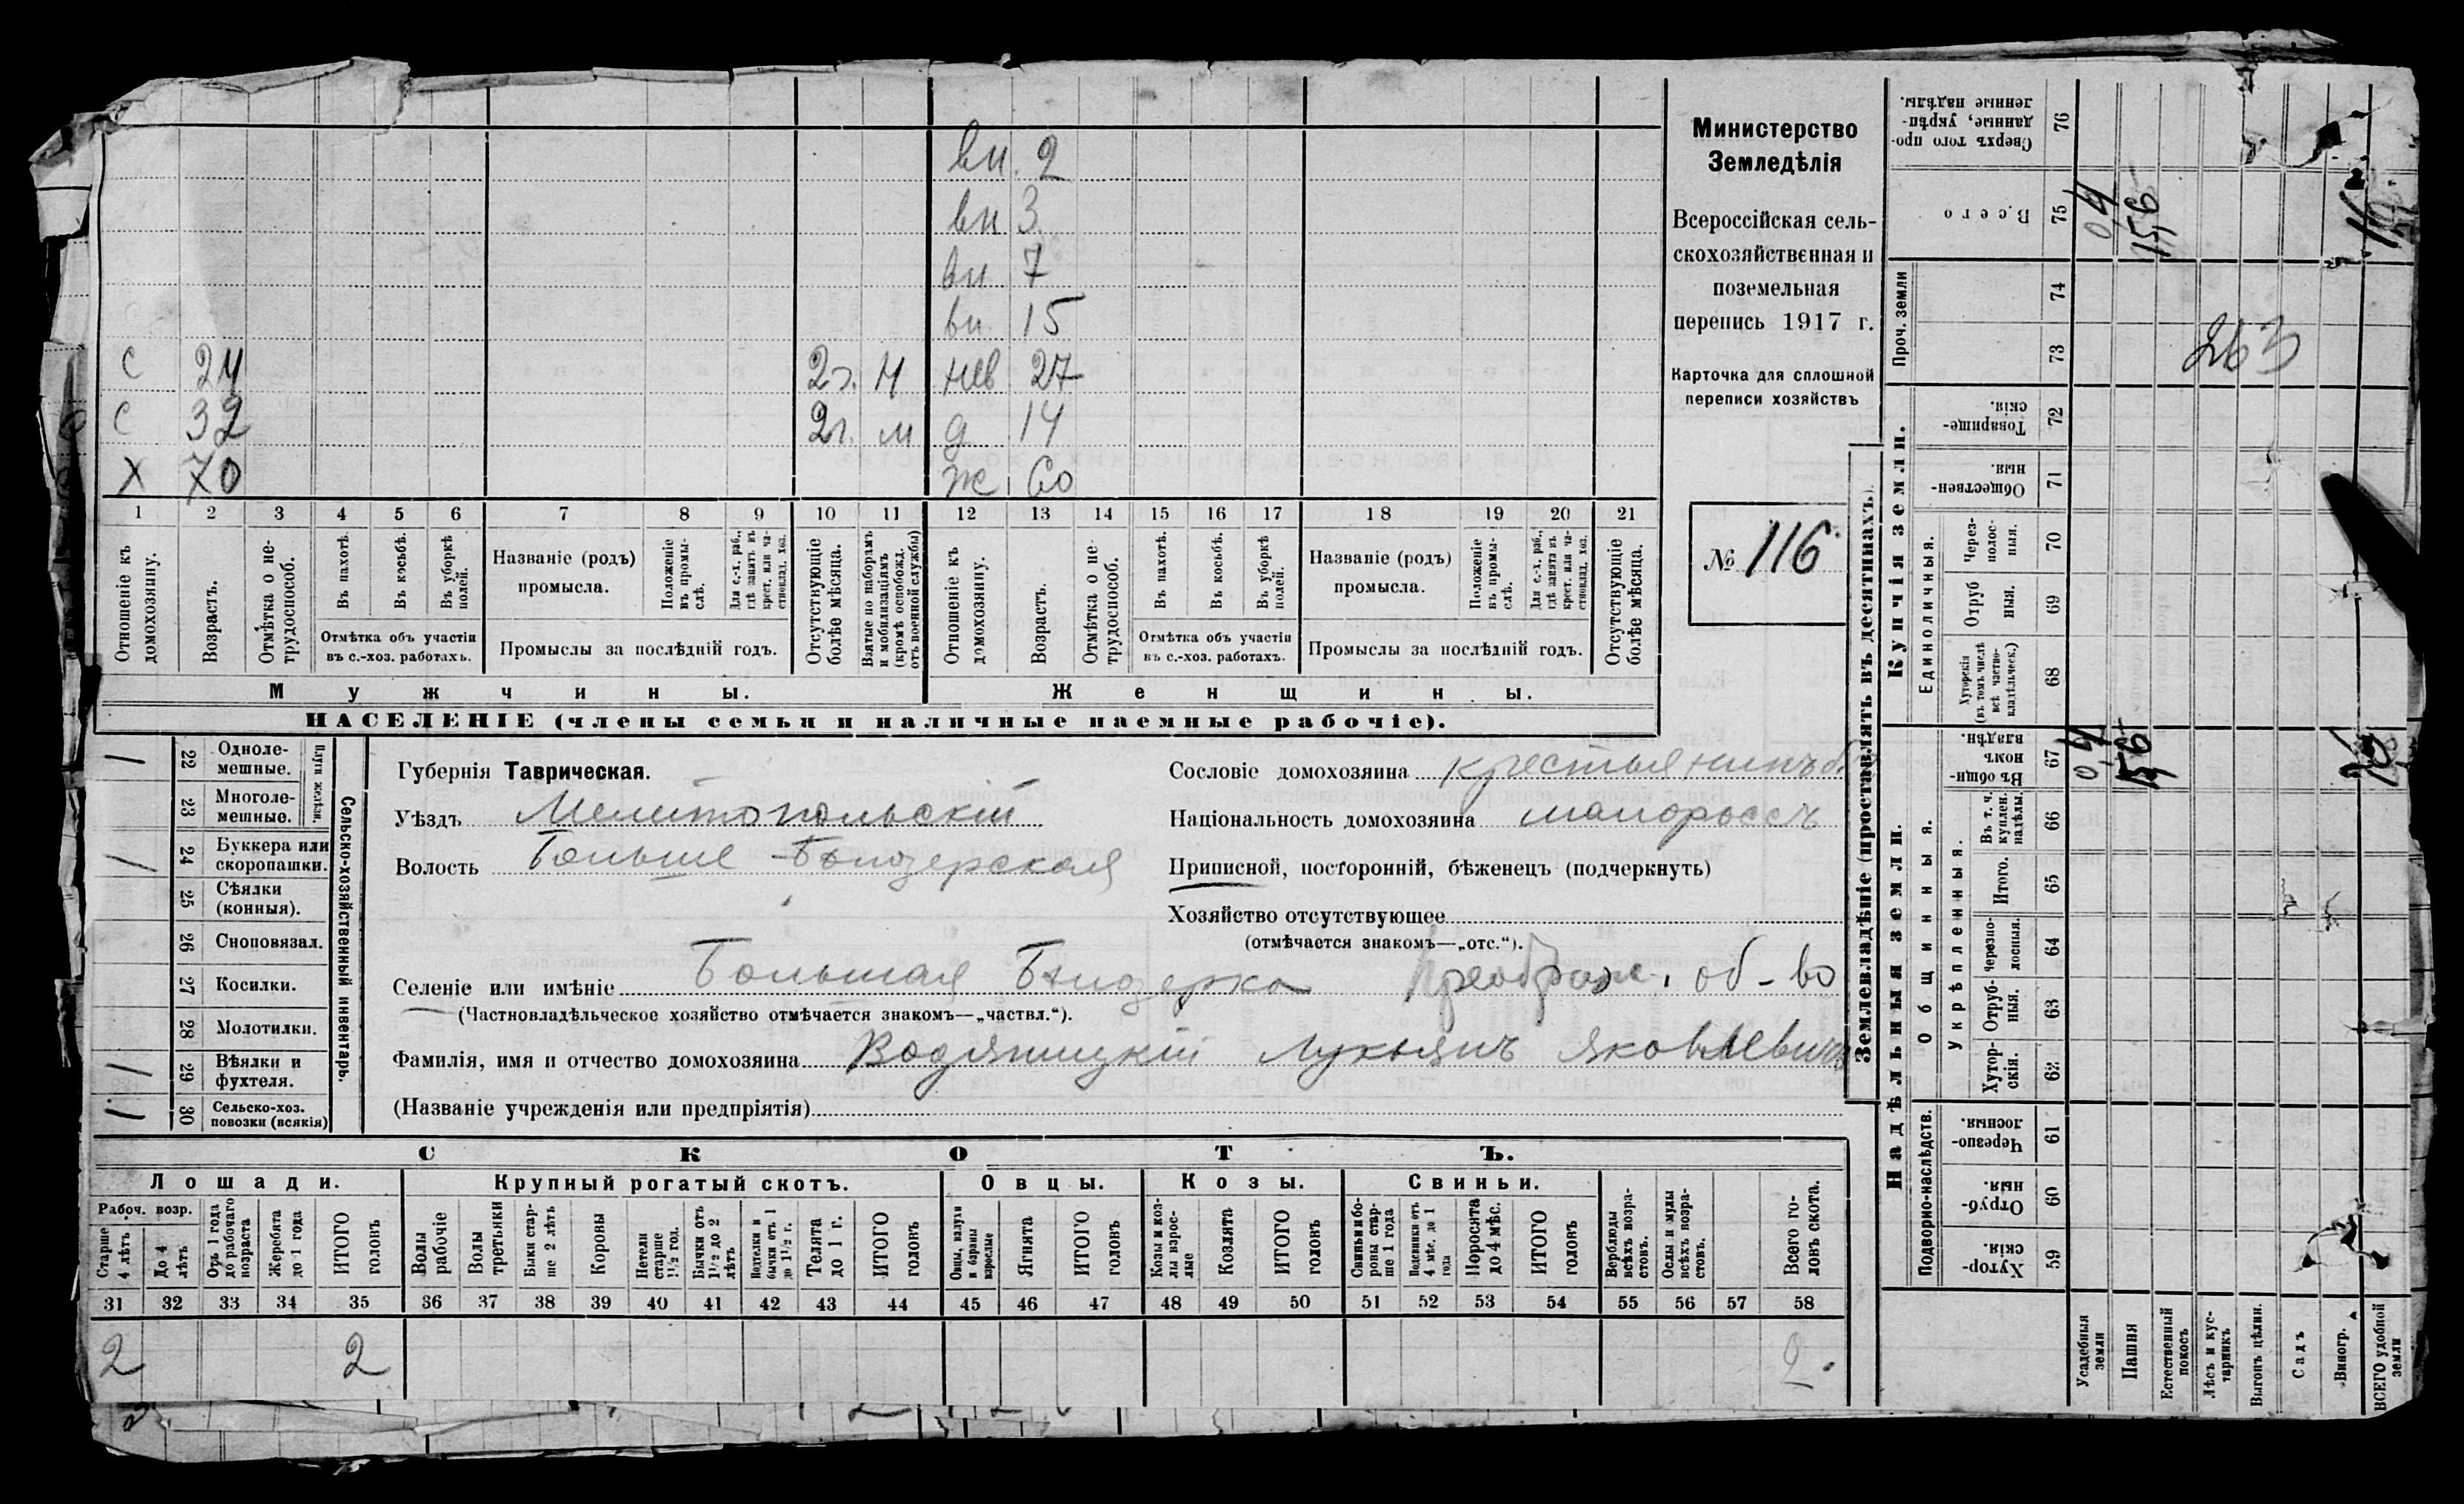 вн. 2
вн 3
вн. 7
вн. 15
С 24 2г. М нев 27
С 32 2г. м д 14
Х 70 ж 60
1 2 3 4 5 6 7 8 9 10 11 12 13 14 15 16 17 18 19 20 21
Отношеніе къ домохозяину.
Возрастъ.
Отмѣтка о не-трудоспособ.
Въ пахотѣ.
Въ косьбѣ.
Въ уборкѣ полей.
Отмѣтка объ участіи въ с.-хоз. работахъ.
Названіе (родъ) промысла.
Положеніе въ промы-слѣ.
Для с.-х. раб., гдѣ занятъ въ крест. или ча-стновлад. хоз.
Промыслы за послѣдній годъ.
Отсутствующіе болѣе мѣсяца.
Взятые по наборамъ и мобилизаціямъ (кромѣ освобожд. отъ военной службы)
Отношеніе къ домохозяину.
Возрастъ.
Отмѣтка о не-трудоспособ.
Въ пахотѣ.
Въ косьбѣ.
Въ уборкѣ полей.
Отмѣтка объ участіи въ с.-хоз. работахъ.
Названіе (родъ) промысла.
Положеніе въ промы-слѣ.
Для с.-х. раб., гдѣ занятъ въ крест. или ча-стновлад. хоз.
Промыслы за послѣдній годъ.
Отсутствующіе болѣе мѣсяца.
Мужчины.
Женщины.
НАСЕЛЕНІЕ (члены семьи и наличные наемные рабочіе).
Министерство
Земледѣлія
Всероссійская сель-
скохозяйственная и
поземельная
перепись 1917 г.
Карточка для сплошной
переписи хозяйствъ
№ 116
Сельско-хозяйственный инвентарь.
Плуги желѣзн.
/ 22 Одноле-мешные.
23 Многоле-мешные.
/ 24 Буккера или скоропашки.
25 Сѣялки (конныя).
26 Сноповязал.
27 Косилки.
28 Молотилки.
/ 29 Вѣялки и фухтеля.
/ 30 Сельско-хоз. повозки (всякія)
Губернія Таврическая.
Уѣздъ Мелитопольскій
Волость Больше-Бѣлозерская
Сословіе домохозяина крестьянинъ
Національность домохозяина малороссъ
Приписной, посторонній, бѣженецъ (подчеркнуть)
Хозяйство отсутствующее
(отмѣчается знакомъ—„отс.“).
Селеніе или имѣніе Большая Бѣлозерка Преображ. об-во
(Частновладѣльческое хозяйство отмѣчается знакомъ—„частвл.“).
Фамилія, имя и отчество домохозяина Водяницкій Лукьянъ Яковлевичъ
(Названіе учрежденія или предпріятія)
СКОТЪ.
Лошади. Крупный рогатый скотъ. Овцы. Козы. Свиньи.
Рабоч. возр.
Старше 4 лѣтъ
До 4 лѣтъ
Отъ 1 года до рабочаго возраста
Жеребята до 1 года
ИТОГО головъ
Волы рабочіе
Волы третьяки
Быки стар-ше 2 лѣтъ
Коровы
Нетели старше 1½ год.
Бычки отъ 1½ до 2 лѣтъ
Подтелки и бычки отъ 1 до 1½ г.
Телята до 1 г.
ИТОГО головъ
Овцы, валухи и бараны взрослые
Ягнята
ИТОГО головъ
Козы и коз-лы взрос-лые
Козлята
ИТОГО головъ
Свиньи и бо-ровы стар-ше 1 года
Подсвинки отъ 4 мѣс. до 1 года
Поросята до 4 мѣс.
ИТОГО головъ
Верблюды всѣхъ возра-стовъ.
Ослы и мулы всѣхъ возра-стовъ.
Всего го-ловъ скота.
31 32 33 34 35 36 37 38 39 40 41 42 43 44 45 46 47 48 49 50 51 52 53 54 55 56 57 58
2 2 2.
Землевладѣніе (проставлять въ десятинахъ).
Надѣльныя земли.
Купчія земли.
Проч. земли
Подворно-наслѣдств.
Общинныя.
Укрѣпленныя.
Единоличныя.
Сверхъ того про-данные, укрѣп-ленные надѣлы. 76
Всего 75 0,4 15,6
74
73 263
Товарище-скія. 72
Обществен-ныя. 71
Через-полос-ныя. 70
Отруб ныя. 69
Хуторскія (въ томъ числѣ всѣ частно-владѣльческ.) 68
Въ общин-номъ владѣн. 67 0,4 15,6
Въ т. ч. куплен. надѣлы. 66
Итого. 65
Черезпо-лосныя. 64
Отруб-ныя. 63
Хутор-скія. 62
Черезпо-лосныя. 61
Отруб-ныя. 60
Хутор-скія. 59
Усадебныя земли
Пашня
Естественный покосъ
Лѣсъ и кус-тарникъ
Выгонъ цѣлин.
Садъ
Виногр.
ВСЕГО удобной земли